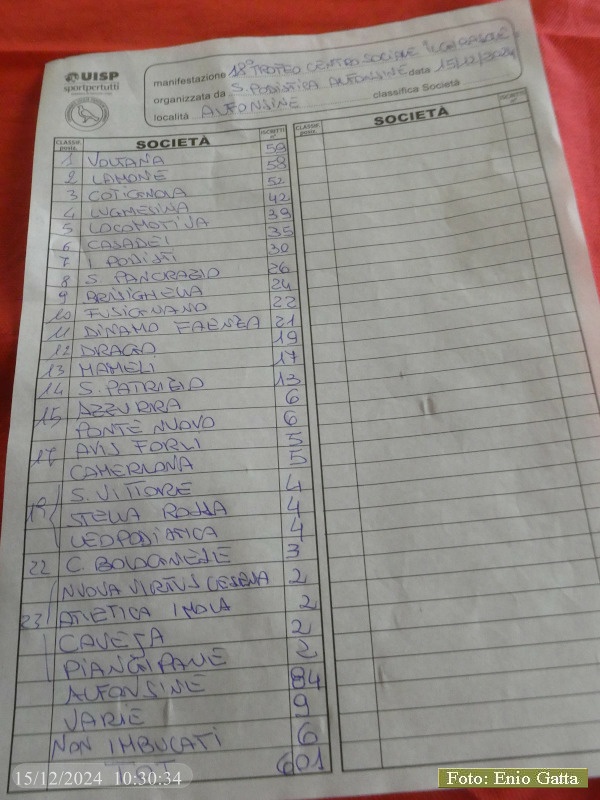 UISP
sportpertutti
manifestazione 18° TROFEO CENTRO SOCIALE "IL GIRASOLE"
organizzata da S. PODISTICA ALFONSINE data 15/12/2024
località ALFONSINE classifica Società
CLASSIF. posiz. SOCIETÀ ISCRITTI n° CLASSIF. posiz. SOCIETÀ ISCRITTI n°
1 VOLTANA 59
2 LAMONE 58
3 COTIGNOLA 52
4 LUGHESINA 42
5 LOCOMOTIVA 39
6 CASADEI 35
7 I PODISTI 30
8 S. PANCRAZIO 26
9 BRISIGHELLA 24
10 FUSIGNANO 22
11 DINAMO FAENZA 21
12 DRAGO 19
13 MAMELI 17
14 S. PATRIZIO 13
15 AZZURRA 6
PONTE NUOVO 6
17 AVIS FORLI 5
CAMERLONA 5
19 S. VITTORE 4
STELLA ROSSA 4
LEOPODISTICA 4
22 C. BOLOGNESE 3
NUOVA VIRTUS CESENA 2
23 ATLETICA IMOLA 2
CAVEJA 2
PIANGIPANE 2
ALFONSINE 84
VARIE 9
NON IMBUCATI 6
TOT 601
15/12/2024 10:30:34
Foto: Enio Gatta